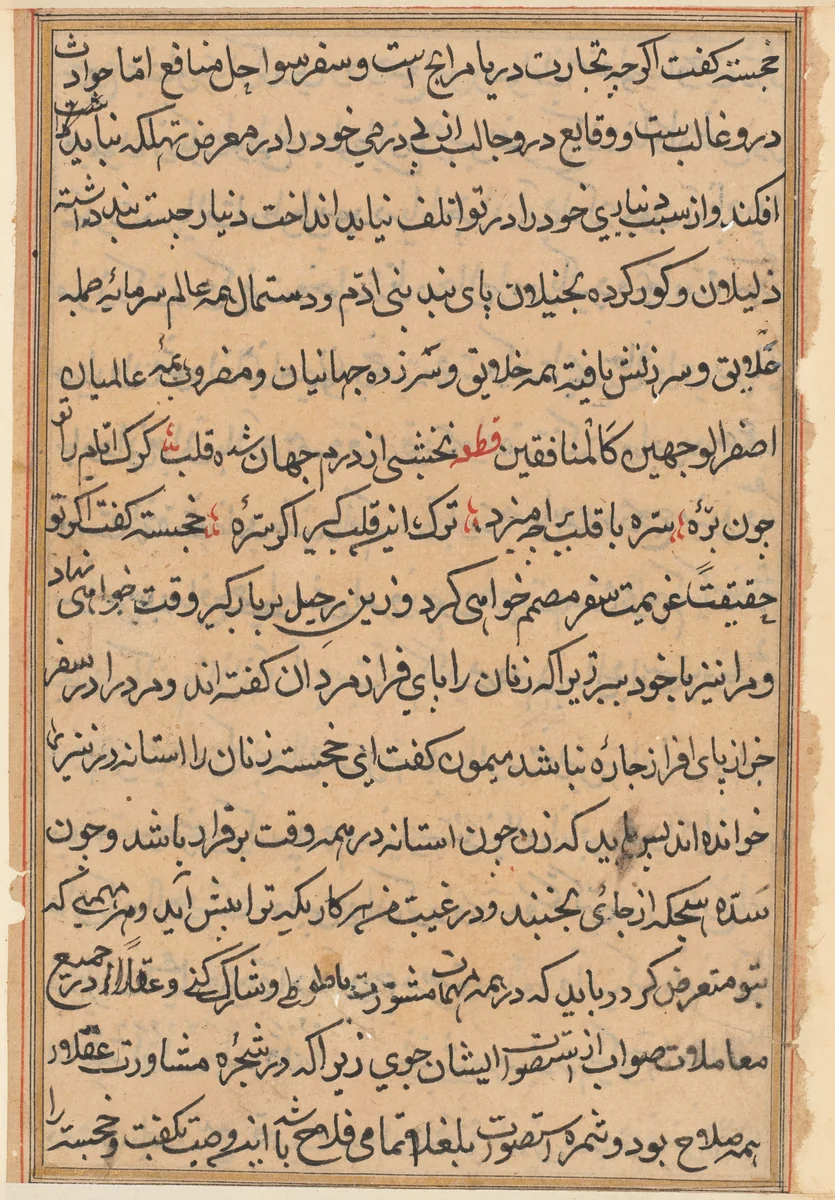 خجسته کفت اکرچه تجارت دریا مرابح است و سفر سواحل منافع امّا حوادث
درو غالبست و وقایع درو جالب از پی درمی خود را در معرض تهلکه نباید
افکند و از سبب دیناری خود را در تو اتلف نباید انداخت دنیار چیست بند داشته
ذلیلان و کور کرده بخیلان پای بند بنی ادم و دستمال همه عالم سرمایهٔ حمله
علایق و سرزنش یافتهٔ همه خلایق و شرزده جهانیان و مضروب همهٔ عالمیان
اصفر الوجهین کالمنافقین قطعه نخشبی از درم جهان شده قلب کرک ایام را تو
چون برّهٔ سره با قلب بر امیزد ترک اند قلب کیر اکر سرّهٔ خجسته کفت اکر تو
حقیقتاً عزیمت سفر مصمم خواهی کرد و زین رحیل بر بارکیر وقت خواهی نهاد
و مرا نیز با خود ببر زیرا که زنان را پای افراز مردان کفته اند و مرد را در سفر
جز از پای افراز چاره نباشد میمون کفت ای خجسته زنان را استانه در نیز
خوانده اند پس باید که زن چون استانه در همه وقت بر قرار باشد و چون
سدّه هیچکه از جای نجنبد و در غیبت من هر کاریکه ترا پیش آید و هر مهمی که
بتو متعرض کردد باید که در همه مهمات مشورت با طوطی و شارک کنی و عقلا را در جمیع
معاملات صواب از استصواب ایشان جوی زیرا که در شجرهٔ مشاورت عقلا ور
همه صلاح بود و ثمره استصواب بلغا تمامی فلاح باشد این وصیت بکفت و خجسته را